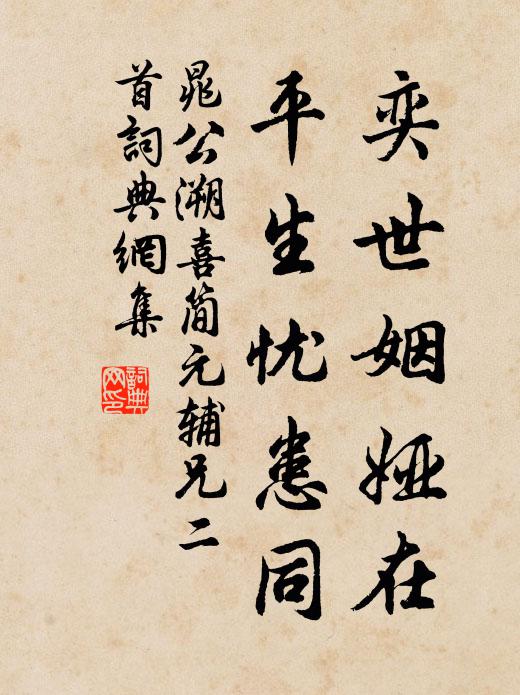 奕世姻娅在
平生忧患同
晁公溯喜简元辅兄二
首詞典網集
詞典網印